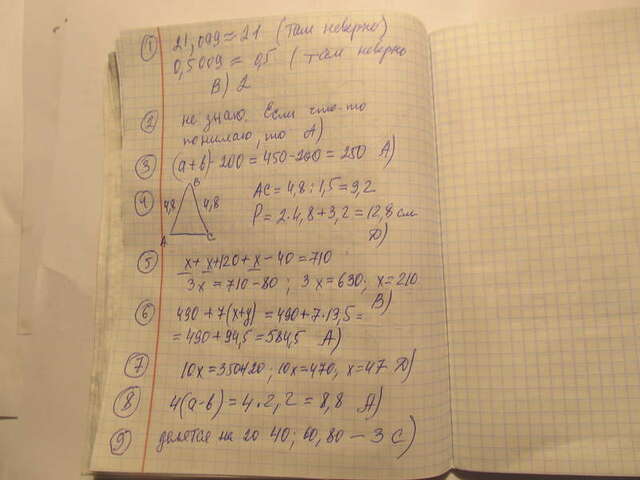 1 21,099≈21 (там неверно)
0,5009≈0,5 (там неверно
В) 2
2 не знаю. Если что-то
понимаю, то А)
3 (a+b)-200=450-200=250 А)
4 B
4,8 4,8
A C
AC=4,8:1,5=3,2
P=2·4,8+3,2=12,8 см
Д)
5 x+x+120+x-40=710
3x=710-80; 3x=630; x=210
В)
6 490+7(x+y)=490+7·13,5=
=490+94,5=584,5 А)
7 10x=350+120; 10x=470, x=47 Д)
8 4(a-b)=4·2,2=8,8 А)
9 делятся на 20 40; 60, 80 — 3 С)